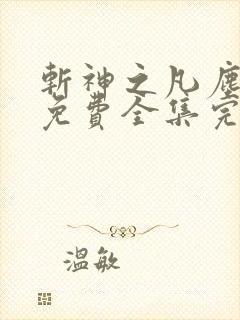 斬神之凡塵
免費全集完
溫敏